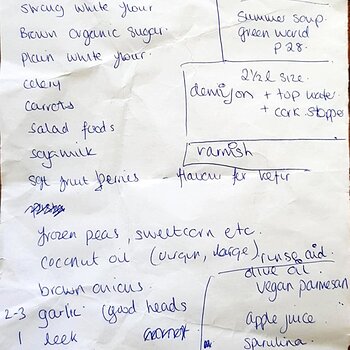 strong white flour
Brown organic sugar.
Plain white flour.
celery
carrots
salad foods
soyamilk
soft fruit berries - flavour for kefir
summer soup
green ward
p 28.
2 1/2 l size.
demijon + top water
+ cork stopper
varnish
frozen peas, sweetcorn etc.
coconut oil (virgin, large)
brown onions.
2-3 garlic (good heads
1 leek
rinse aid
olive oil.
vegan parmesan
apple juice.
spirulina.